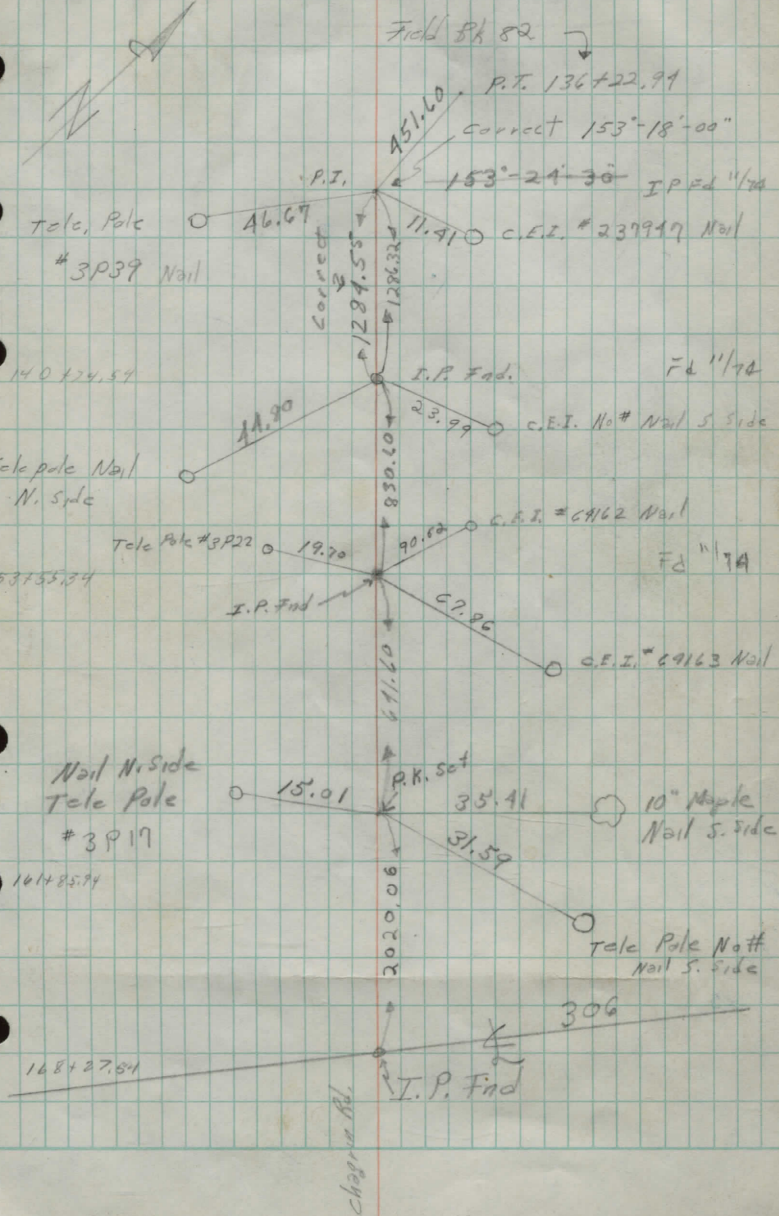 Field Bk 82
P.T. 136+22.94
451.60
Correct 153°-18'-00"
P.I.
153°-24'-30"
I P Fd 11/74
Tele. Pole
#3P39 Nail
46.67
11.41
C.E.I. #237947 Nail
Correct
1284.55
1286.32
140+74.54
I.P. Fnd.
Fd 11/74
44.90
23.99
C.E.I. No# Nail S. Side
Tele pole Nail
N. Side
830.60
Tele Pole #3P22
19.70
90.62
C.E.I. #69162 Nail
Fd 11/74
53+55.34
I.P. Fnd
67.86
C.E.I. #69163 Nail
641.60
Nail N. Side
Tele Pole
#3P17
15.01
P.K. Set
35.41
10" Maple
Nail S. Side
31.59
161+85.94
2020.06
Tele Pole No#
Nail S. Side
306
168+27.54
I.P. Fnd
Chagrin Rd.